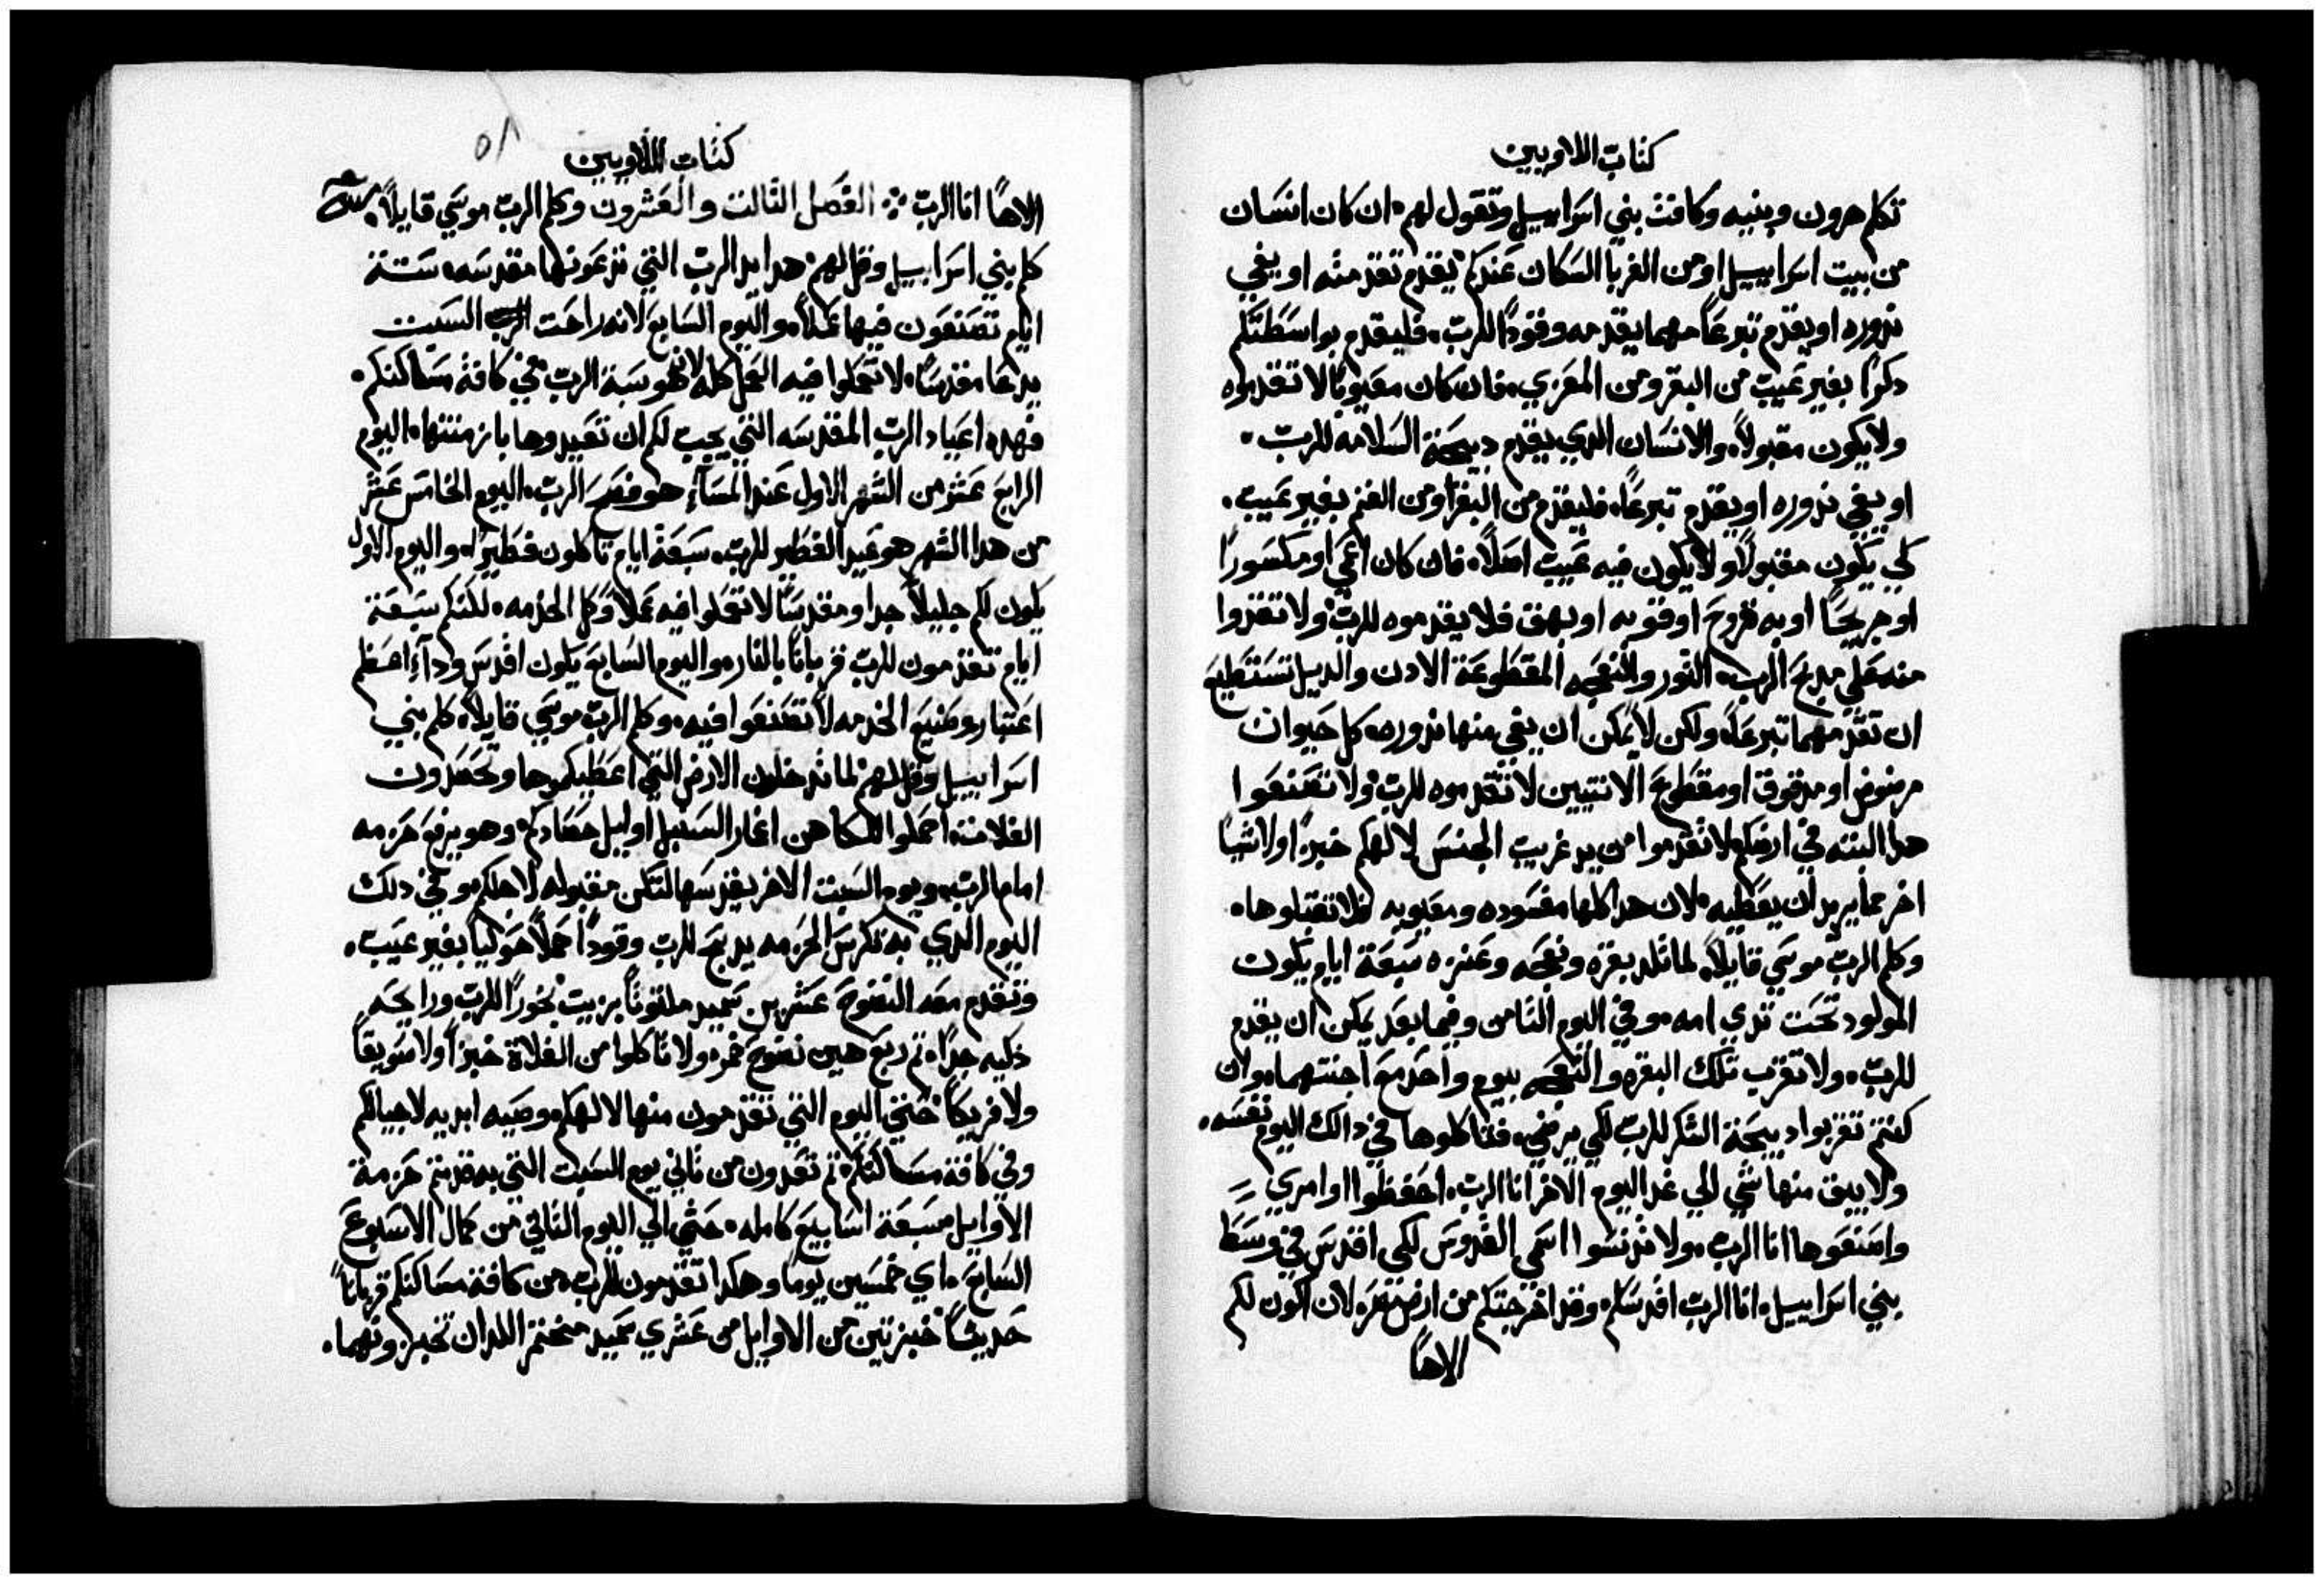 كتاب اللاويين
تكلم هرون وبنيه وكافت بني اسراييل وتقول لهم ان كان انسان
من بيت اسراييل او من الغربا السكان عندكم يقدم تقدمته او يفي
ندوره او يقدم تبرعاً مهما يقدمه وقوداً للرب، فليقدم بواسطتكم
دكراً بغير عيب من البقر ومن المعزي، فان كان معيوباً لا تقدموه
ولا يكون مقبولاً، والانسان الدي يقدم دبيحة السلامه للرب.
او يفي ندوره او يقدم تبرعاً، فليقدم من البقر اومن الغنم بغير عيب.
لكي يكون مقبولاً ولا يكون فيه عيب اصلاً، فان كان اعمي او مكسوراً
او جريحاً او به قروح او قوبه او بهق فلا يقدموه للرب، ولا تقدوا
منه علي مدبح الرب، التور والنعجه المقطوعة الادن والديل تستطيع
ان تقدمهما تبرعاً، ولكن لا يمكن ان يفي منها ندوره، كل حيوان
مرضوض او مدقوق او مقطوع الانتيين لا تقدموه للرب، ولا تصنعوا
هدا البته في ارضكم، لا تقدموا من يد غريب الجنس لالهكم خبزاً اولا شياً
اخر مما يريد ان يعطيه، لان هدا كلها مفسوده ومعيوبه فلا تقبلوها.
وكلم الرب موسي قايلاً، لما تلد بقره ونعجه وعنزه سبعة ايام يكون
المولود تحت تدي امه، وفي اليوم التامن وفيما بعد يمكن ان يقدم
للرب، ولا تقرب تلك البقره والنعجه بيوم واحد مع اجنتهما، وان
كنتم تقربوا دبيحة الشكر للرب لكي يرضي، فتاكلوها في دالك اليوم نفسه،
ولا يبق منها شي الي غد اليوم الاخر انا الرب، احفظوا اوامري
واصنعوها انا الرب، ولا تدنسوا اسمي القدوس لكي اقدس في وسط
بني اسراييل، انا الرب اقدسكم، وقد اخرجتكم من ارض مصر لان اكون لكم
الاهاً
كتاب اللاويين
الاهاً انا الرب ∴ الفصل التالت والعشرون وكلم الرب موسي قايلاً،
كلم بني اسراييل وقل لهم، هدا عيد الرب التي تدعونها مقدسه، ستة
ايام تصنعون فيها عملاً، واليوم السابع لانه راحت السبت
يدعا مقدساً، لا تعملوا فيه العمل كله لانه هو سبة الرب في كافة مساكنكم.
فهده اعياد الرب المقدسه التي يجب لكم ان تعيدوها بازمنتها، اليوم
الرابع عشر من الشهر الاول عند المسآء هو فصح الرب، اليوم الخامس عشر
من هدا الشهر هو عيد الفطير للرب، سبعة ايام تاكلون فطيراً، واليوم الاول
يكون لكم جليلاً جدا ومقدساً لا تعملوا فيه عملاً وكل الخدمه، لكنكم سبعة
ايام تقدمون للرب قرباناً بالنار، واليوم السابع يكون اقدس ودآء اعظم
اعتبار وصنيع الخدمه لا تصنعوا فيه، وكلم الرب موسي قايلاً، كلم بني
اسراييل وقل لهم، لما تدخلون الارض التي اعطيكموها وتحصدون
الغلات، احملوا للكاهن اغمار السنبل اوليل حصادكم وهو يرفع حزمه
امام الرب، ويوم السبت الاخر يقدسها لتكن مقبوله لاجلكم، وفي دلك
اليوم الدي به تكرس الحزمه يدبح للرب وقوداً حملاً حولياً بغير عيب.
وتقدم معه النضوح عشرين سميد ملتوتاً بزيت بخوراً للرب ورايحه
دكيه جداً، تم ربع هين نضوح خمر، ولا تاكلوا من الغلاة خبزاً ولا سويقاً
ولا فريكاً حتي اليوم التي تقدمون منها لالهكم، وصيه ابديه لاجيالكم
وفي كافة مساكنكم، تم تعدون من تاني يوم السبت التي به قدمتم حزمة
الاوايل سبعة اسابيع كامله، حتي الي اليوم التاني من كمال الاسبوع
السابع، اي خمسين يوما وهكدا تقدمون للرب من كافة مساكنكم قرباناً
حديثاً خبزتين من الاوايل من عشري سميد مختمر اللدان تخبزونهما.